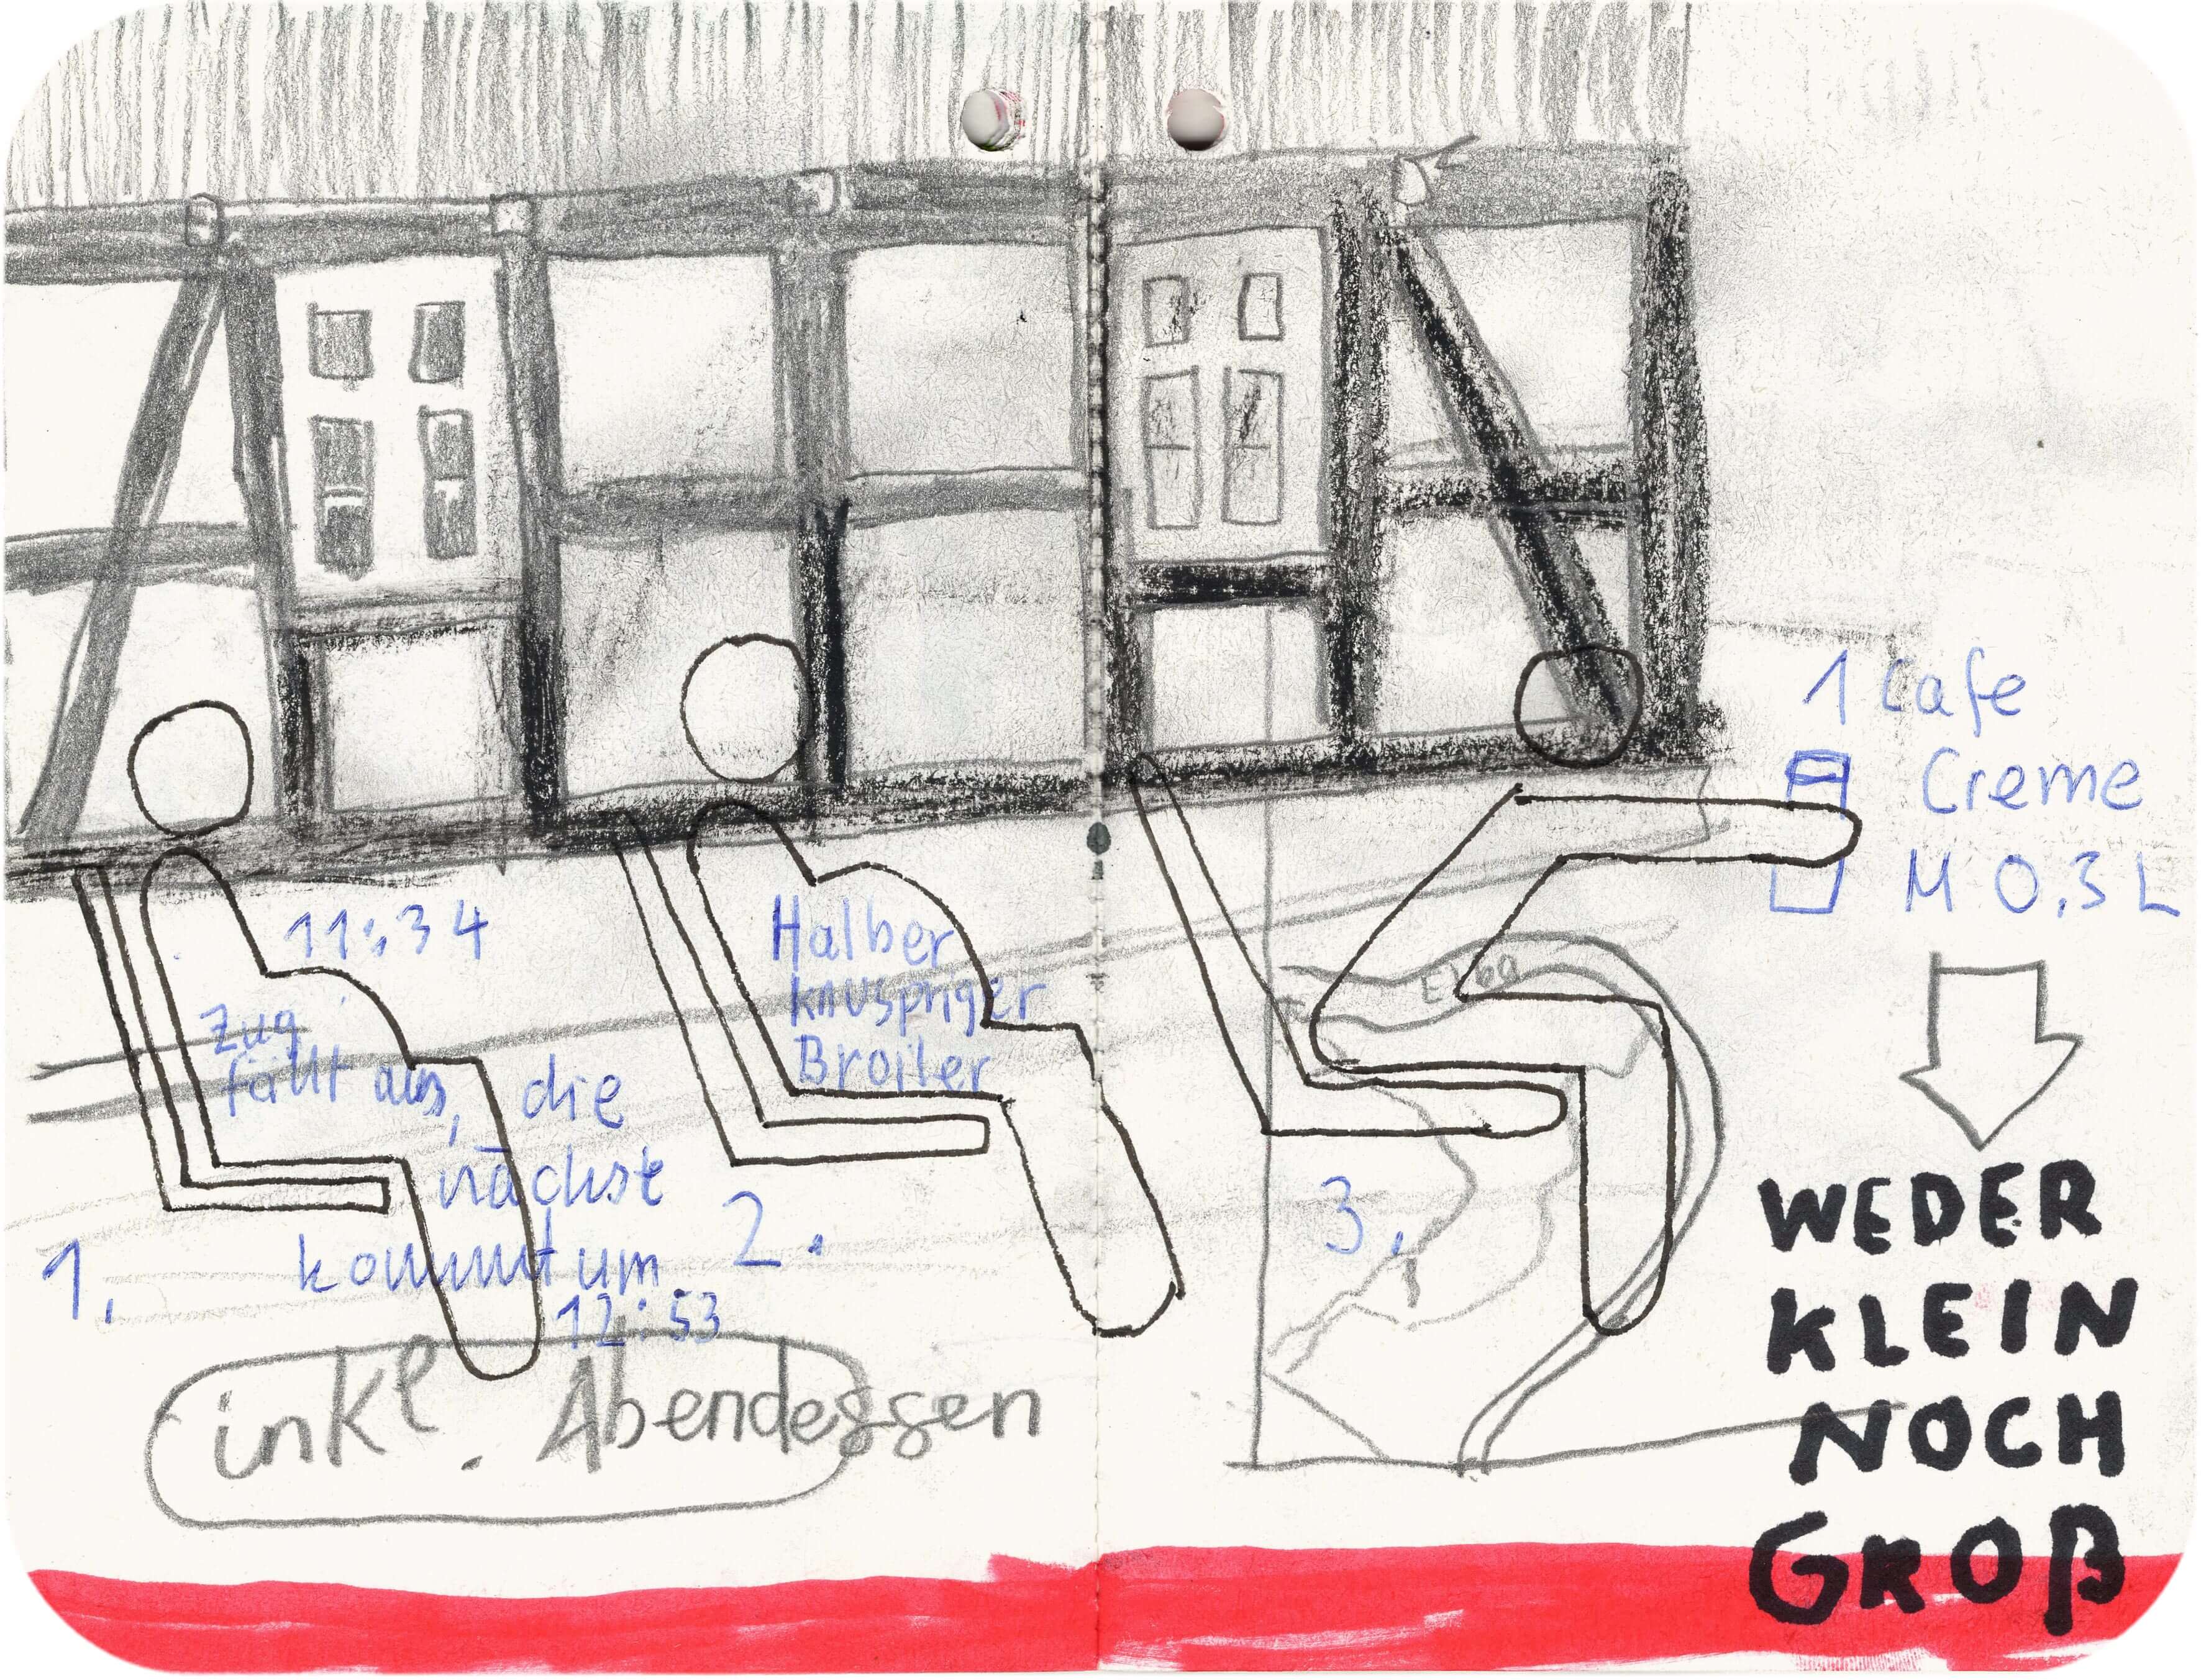 11:34
Zug
fällt aus, die
nächste
kommt um
12:53
1.
Halber
knuspriger
Broiler
2.
Elba
3.
1 Cafe
Creme
M 0,3 L
WEDER
KLEIN
NOCH
GROß
inkl. Abendessen